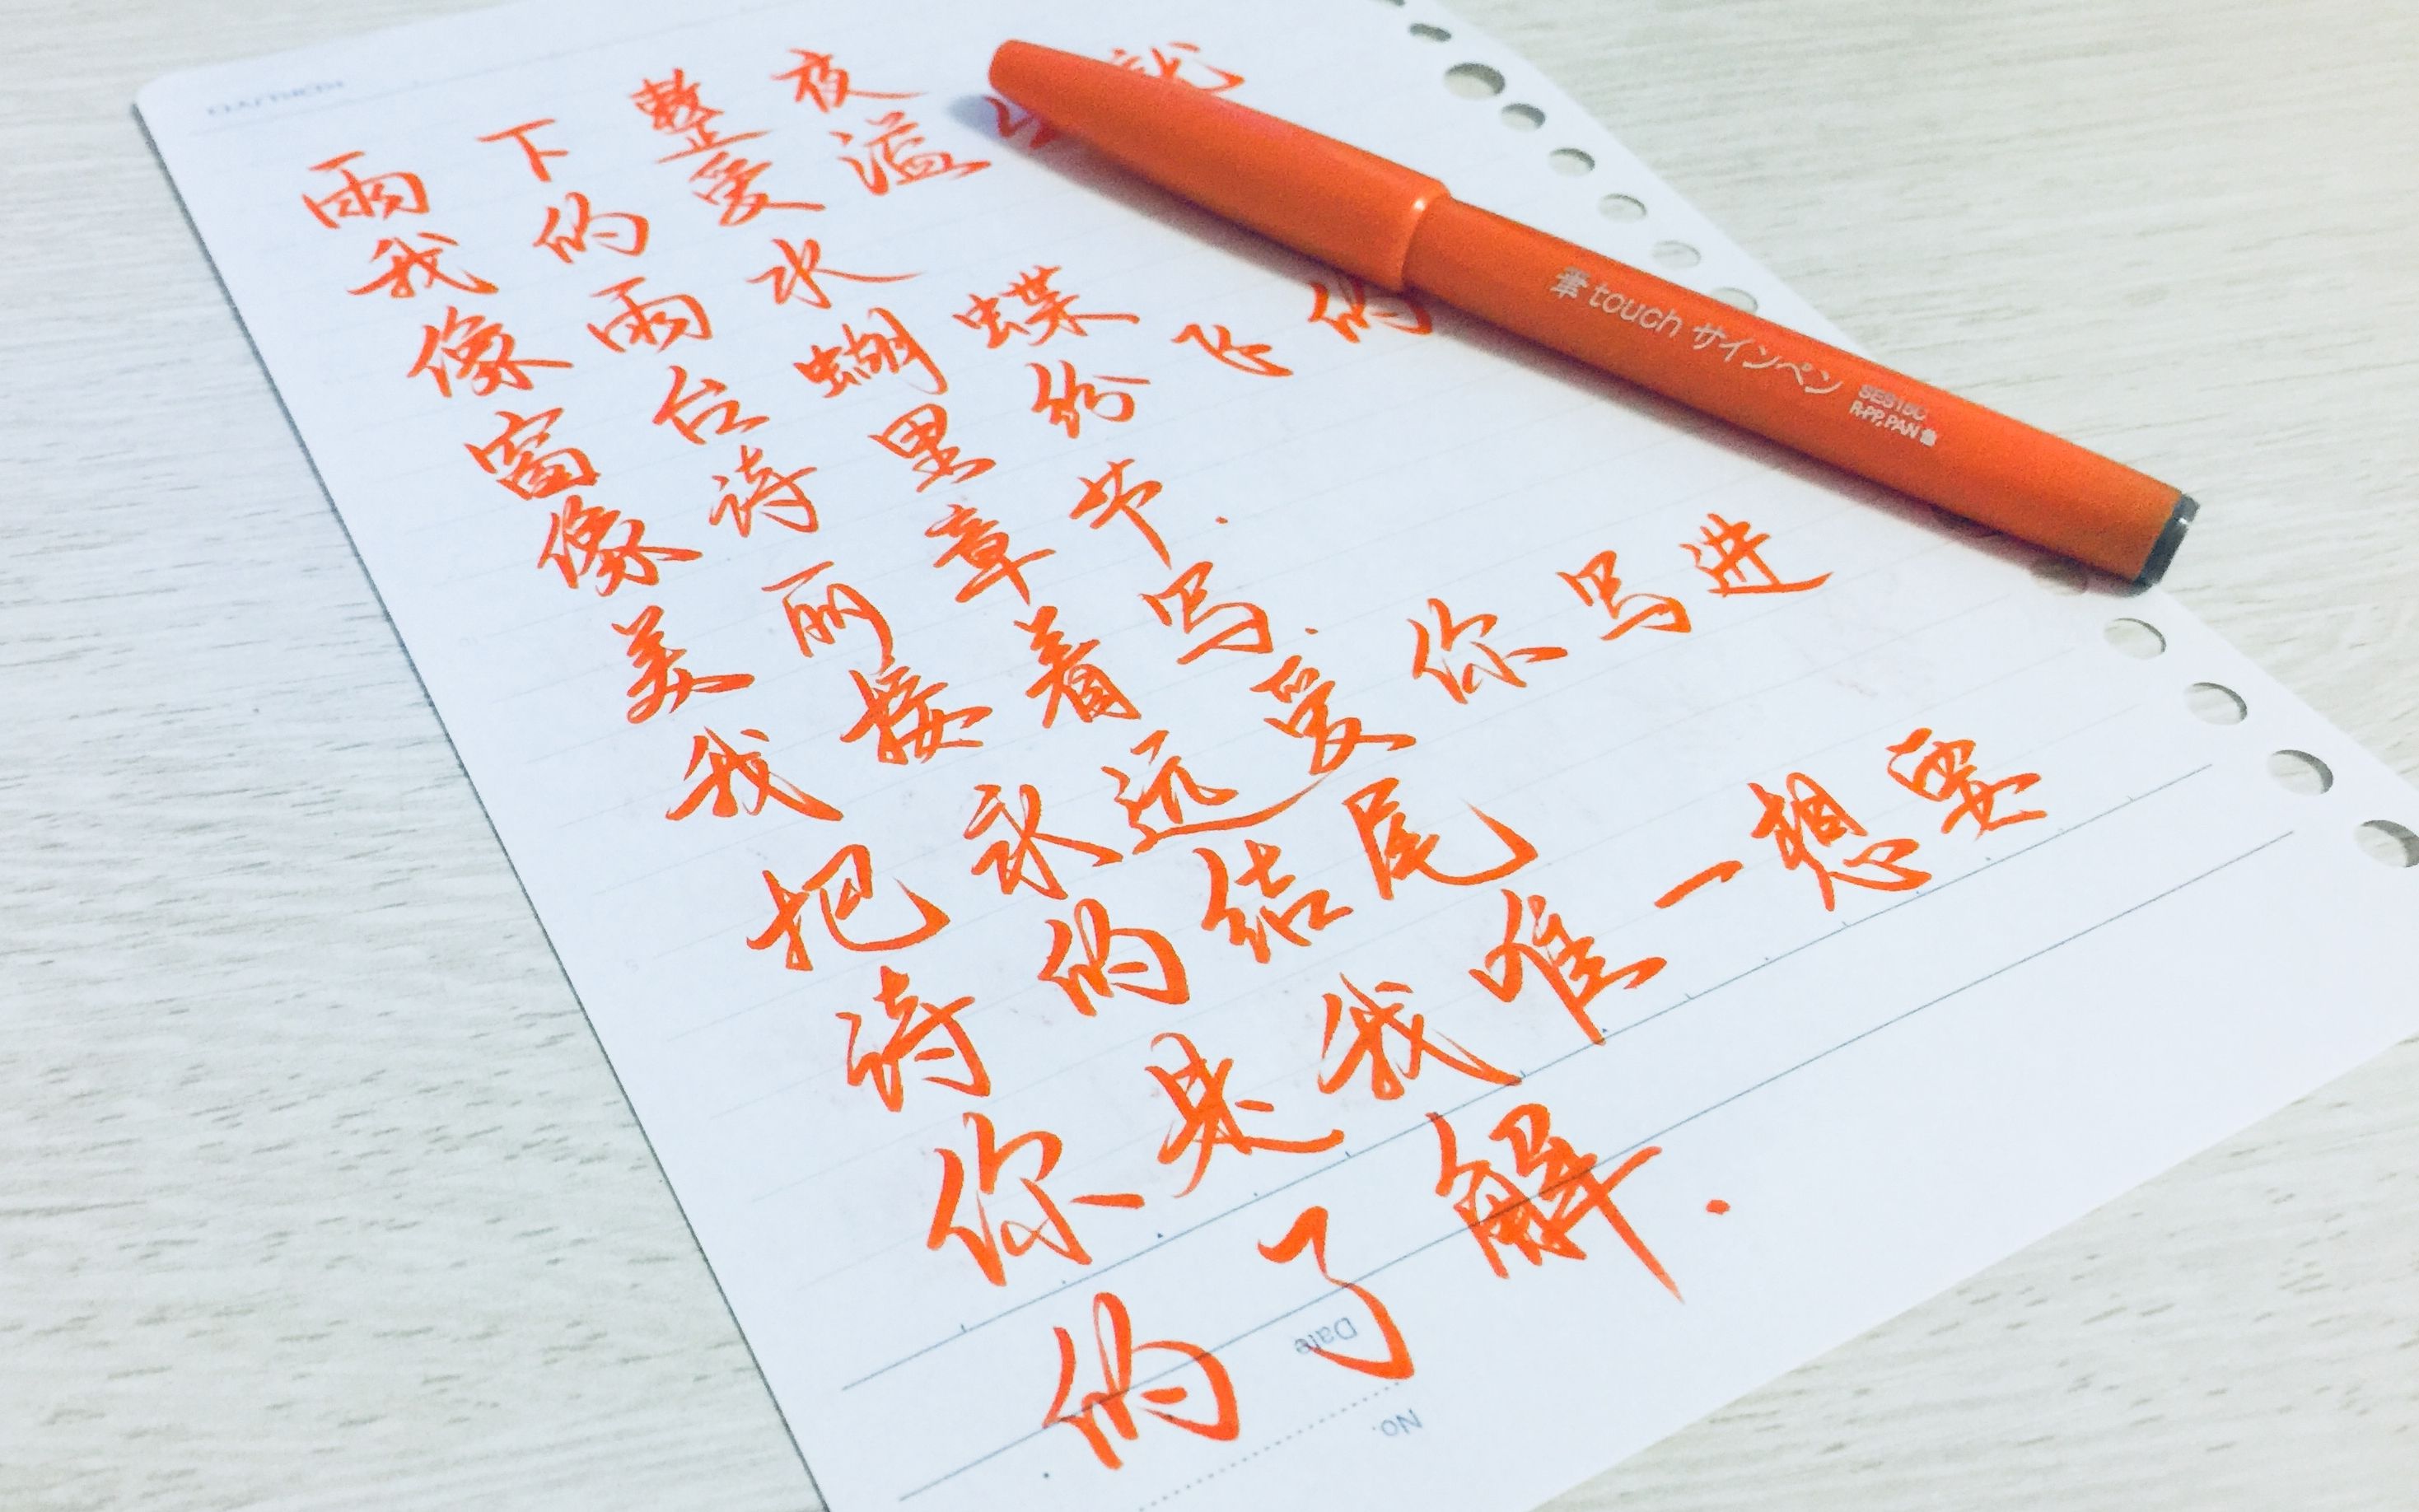 雨下整夜
我的爱溢就
像雨水
窗台蝴蝶
像诗里纷飞的
美丽章节.
我接着写.
把永远爱你写进
诗的结尾
你是我唯一想要
的了解.
筆touch サインペン
SES15C
R:PP, PAN
Date
No.